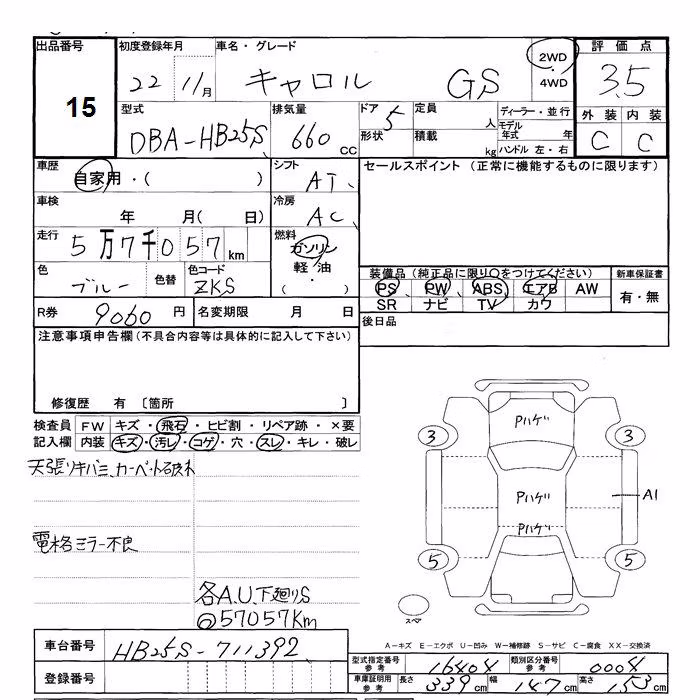 出品番号 初度登録年月 車名・グレード 2WD 評価点
15 22 11月 キャロル GS ・4WD 3.5
型式 排気量 ドア 定員 ディーラー・並行 外装 内装
DBA-HB25S 660 CC 5 人 モデル年式 年 C C
形状 積載 kg ハンドル 左・右
車歴 自家用・( ) シフト AT セールスポイント (正常に機能するものに限ります)
車検 年 月( 日) 冷房 AC
走行 5万7千057km 燃料 ガソリン
色 ブルー 色替 色コード ZKS 軽油 ・( )
装備品(純正品に限り○をつけてください) 新車保証書
PS PW ABS エアB AW 有・無
SR ナビ TV カワ
R券 9060円 名変期限 月 日 後日品
注意事項申告欄(不具合内容等は具体的に記入して下さい)
修復歴 有 〔箇所 〕
検査員 FW キズ・飛石・ヒビ割・リペア跡・×要
記入欄 内装 キズ・汚レ・コゲ・穴・スレ・キレ・破レ
天張リキバミ、カーペト
電格ミラー不良
各A.U、下廻りS
57057Km
Pハゲ
3 3
Pハゲ A1
Pハゲ
5 5
スペア
A-キズ E-エクボ U-凹み W-補修跡 S-サビ C-腐食 XX-交換済
車台番号 HB25S-711392
登録番号
型式指定番号 参考 16404 類別区分番号 参考 0004
車庫証明用 参考 長さ 339cm 幅 147cm 高さ 153cm